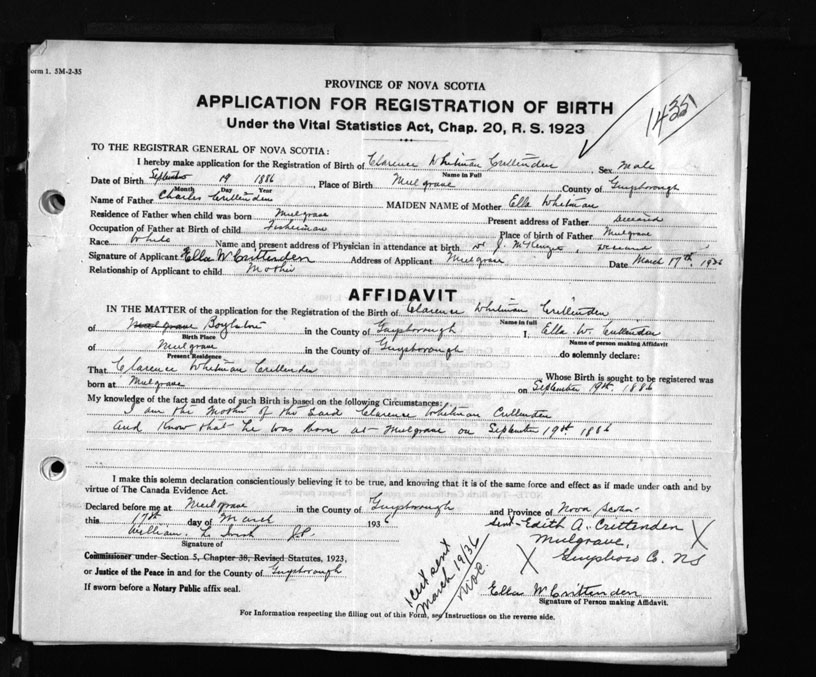 orm 1. 5M-2-35
PROVINCE OF NOVA SCOTIA
APPLICATION FOR REGISTRATION OF BIRTH
Under the Vital Statistics Act, Chap. 20, R. S. 1923
1435
TO THE REGISTRAR GENERAL OF NOVA SCOTIA:
I hereby make application for the Registration of Birth of Clarence Whitman Crittenden, Sex Male
Name in Full
Date of Birth September 19 1886, Place of Birth Mulgrave County of Guysborough
Month Day Year
Name of Father Charles Crittenden MAIDEN NAME of Mother Ella Whitman
Residence of Father when child was born Mulgrave Present address of Father deceased
Occupation of Father at Birth of child Fisherman Place of birth of Father Mulgrave
Race White Name and present address of Physician in attendance at birth Dr J. McKenzie, Deceased
Signature of Applicant Ella W Crittenden Address of Applicant Mulgrave Date March 17th, 1936
Relationship of Applicant to child Mother
AFFIDAVIT
IN THE MATTER of the application for the Registration of the Birth of Clarence Whitman Crittenden
Name in full
of Mulgrave Boylston in the County of Guysborough I, Ella W. Crittenden
Birth Place Name of person making Affidavit
of Mulgrave in the County of Guysborough do solemnly declare:
Present Residence
That Clarence Whitman Crittenden Whose Birth is sought to be registered was
born at Mulgrave on September 19th, 1886
My knowledge of the fact and date of such Birth is based on the following Circumstances:
I am the Mother of the said Clarence Whitman Crittenden
and know that he was born at Mulgrave on September 19th 1886
I make this solemn declaration conscientiously believing it to be true, and knowing that it is of the same force and effect as if made under oath and by
virtue of The Canada Evidence Act.
Declared before me at Mulgrave in the County of Guysborough and Province of Nova Scotia
this 17th day of March 1936 Sent- Edith A. Crittenden X
William L J.P. Mulgrave,
Signature of X Guysboro Co. NS
Commissioner under Section 5, Chapter 38, Revised Statutes, 1923,
or Justice of the Peace in and for the County of Guysborough
1 cert sent
March 19/36
If sworn before a Notary Public affix seal.
Ella W Crittenden
Signature of Person making Affidavit.
For Information respecting the filling out of this Form, see Instructions on the reverse side.